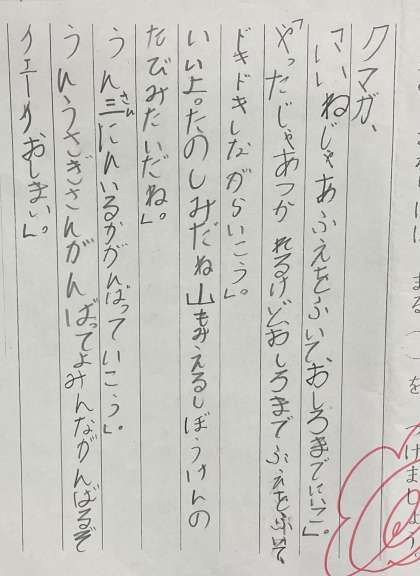 つけましょう。
クマが、
「いいねじゃあふえをふいて、おしろまでにいこ」。
「やったじゃあつかれるけどおしろまでふえをふいて
ドキドキしながらいこう」。
いいよ。たのしみだね山もみえるしぼうけんの
たびみたいだね」。
うん三にんいるかがんばっていこう」。
うんうさぎさんがんばってよみんながんばるぞ
イエーイおしまい。」。